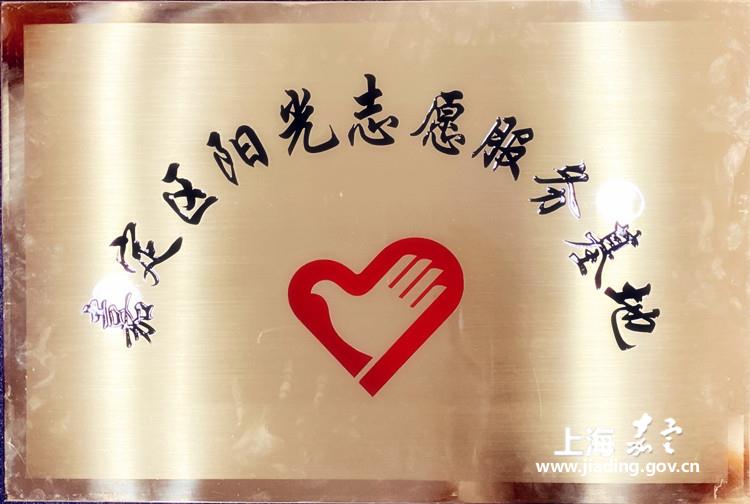 嘉定区阳光志愿服务基地
上海嘉定
www.jiading.gov.cn